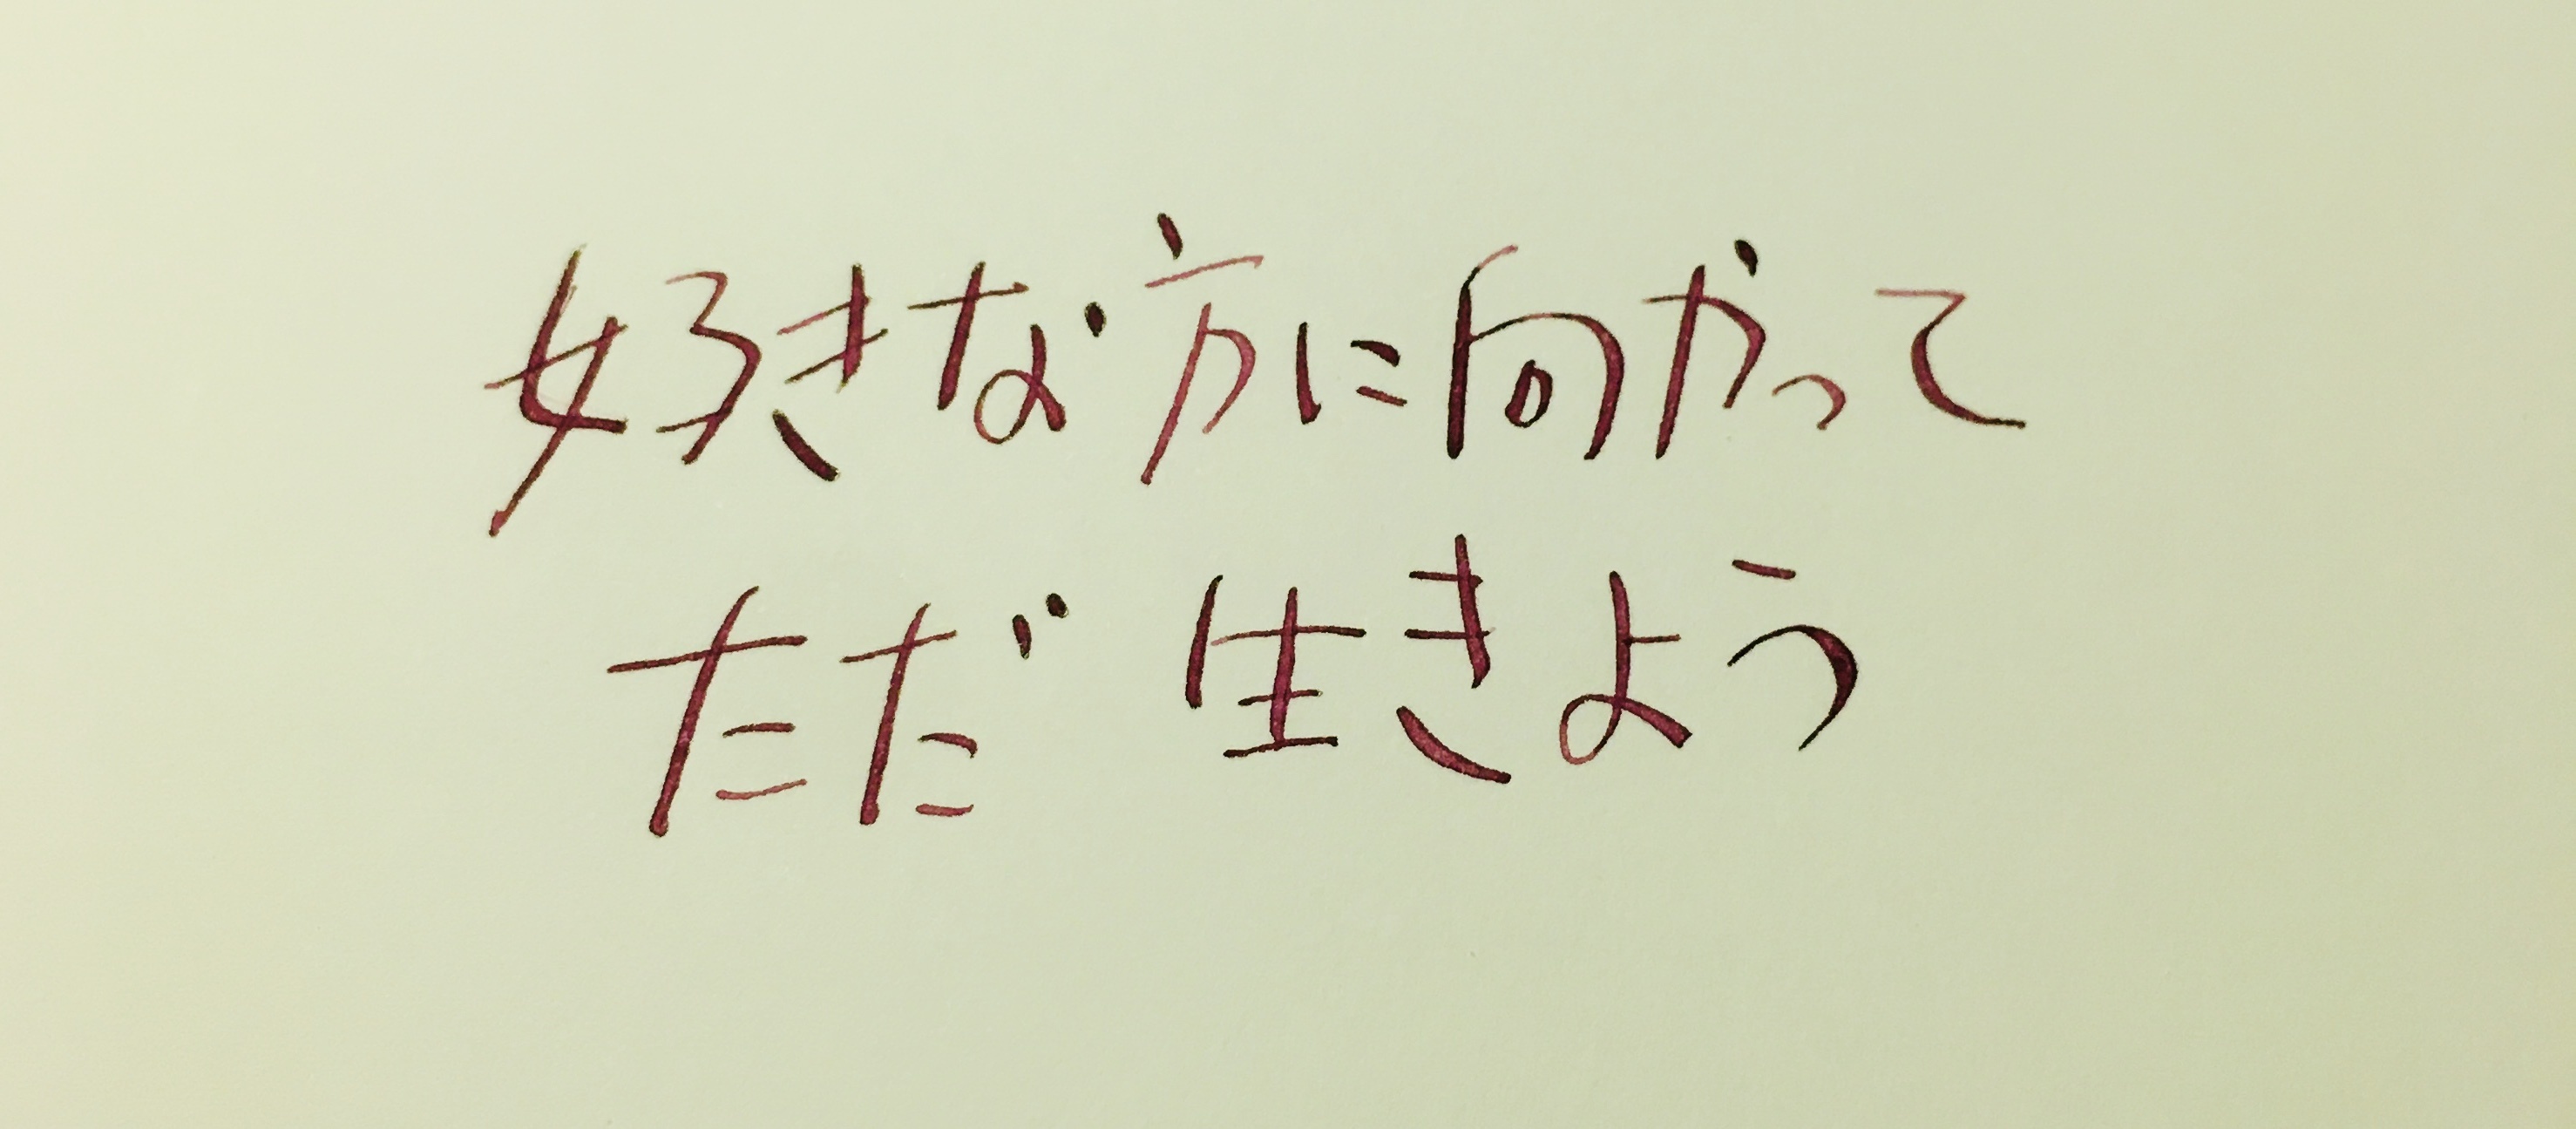 好きな方に向かって
ただ 生きよう